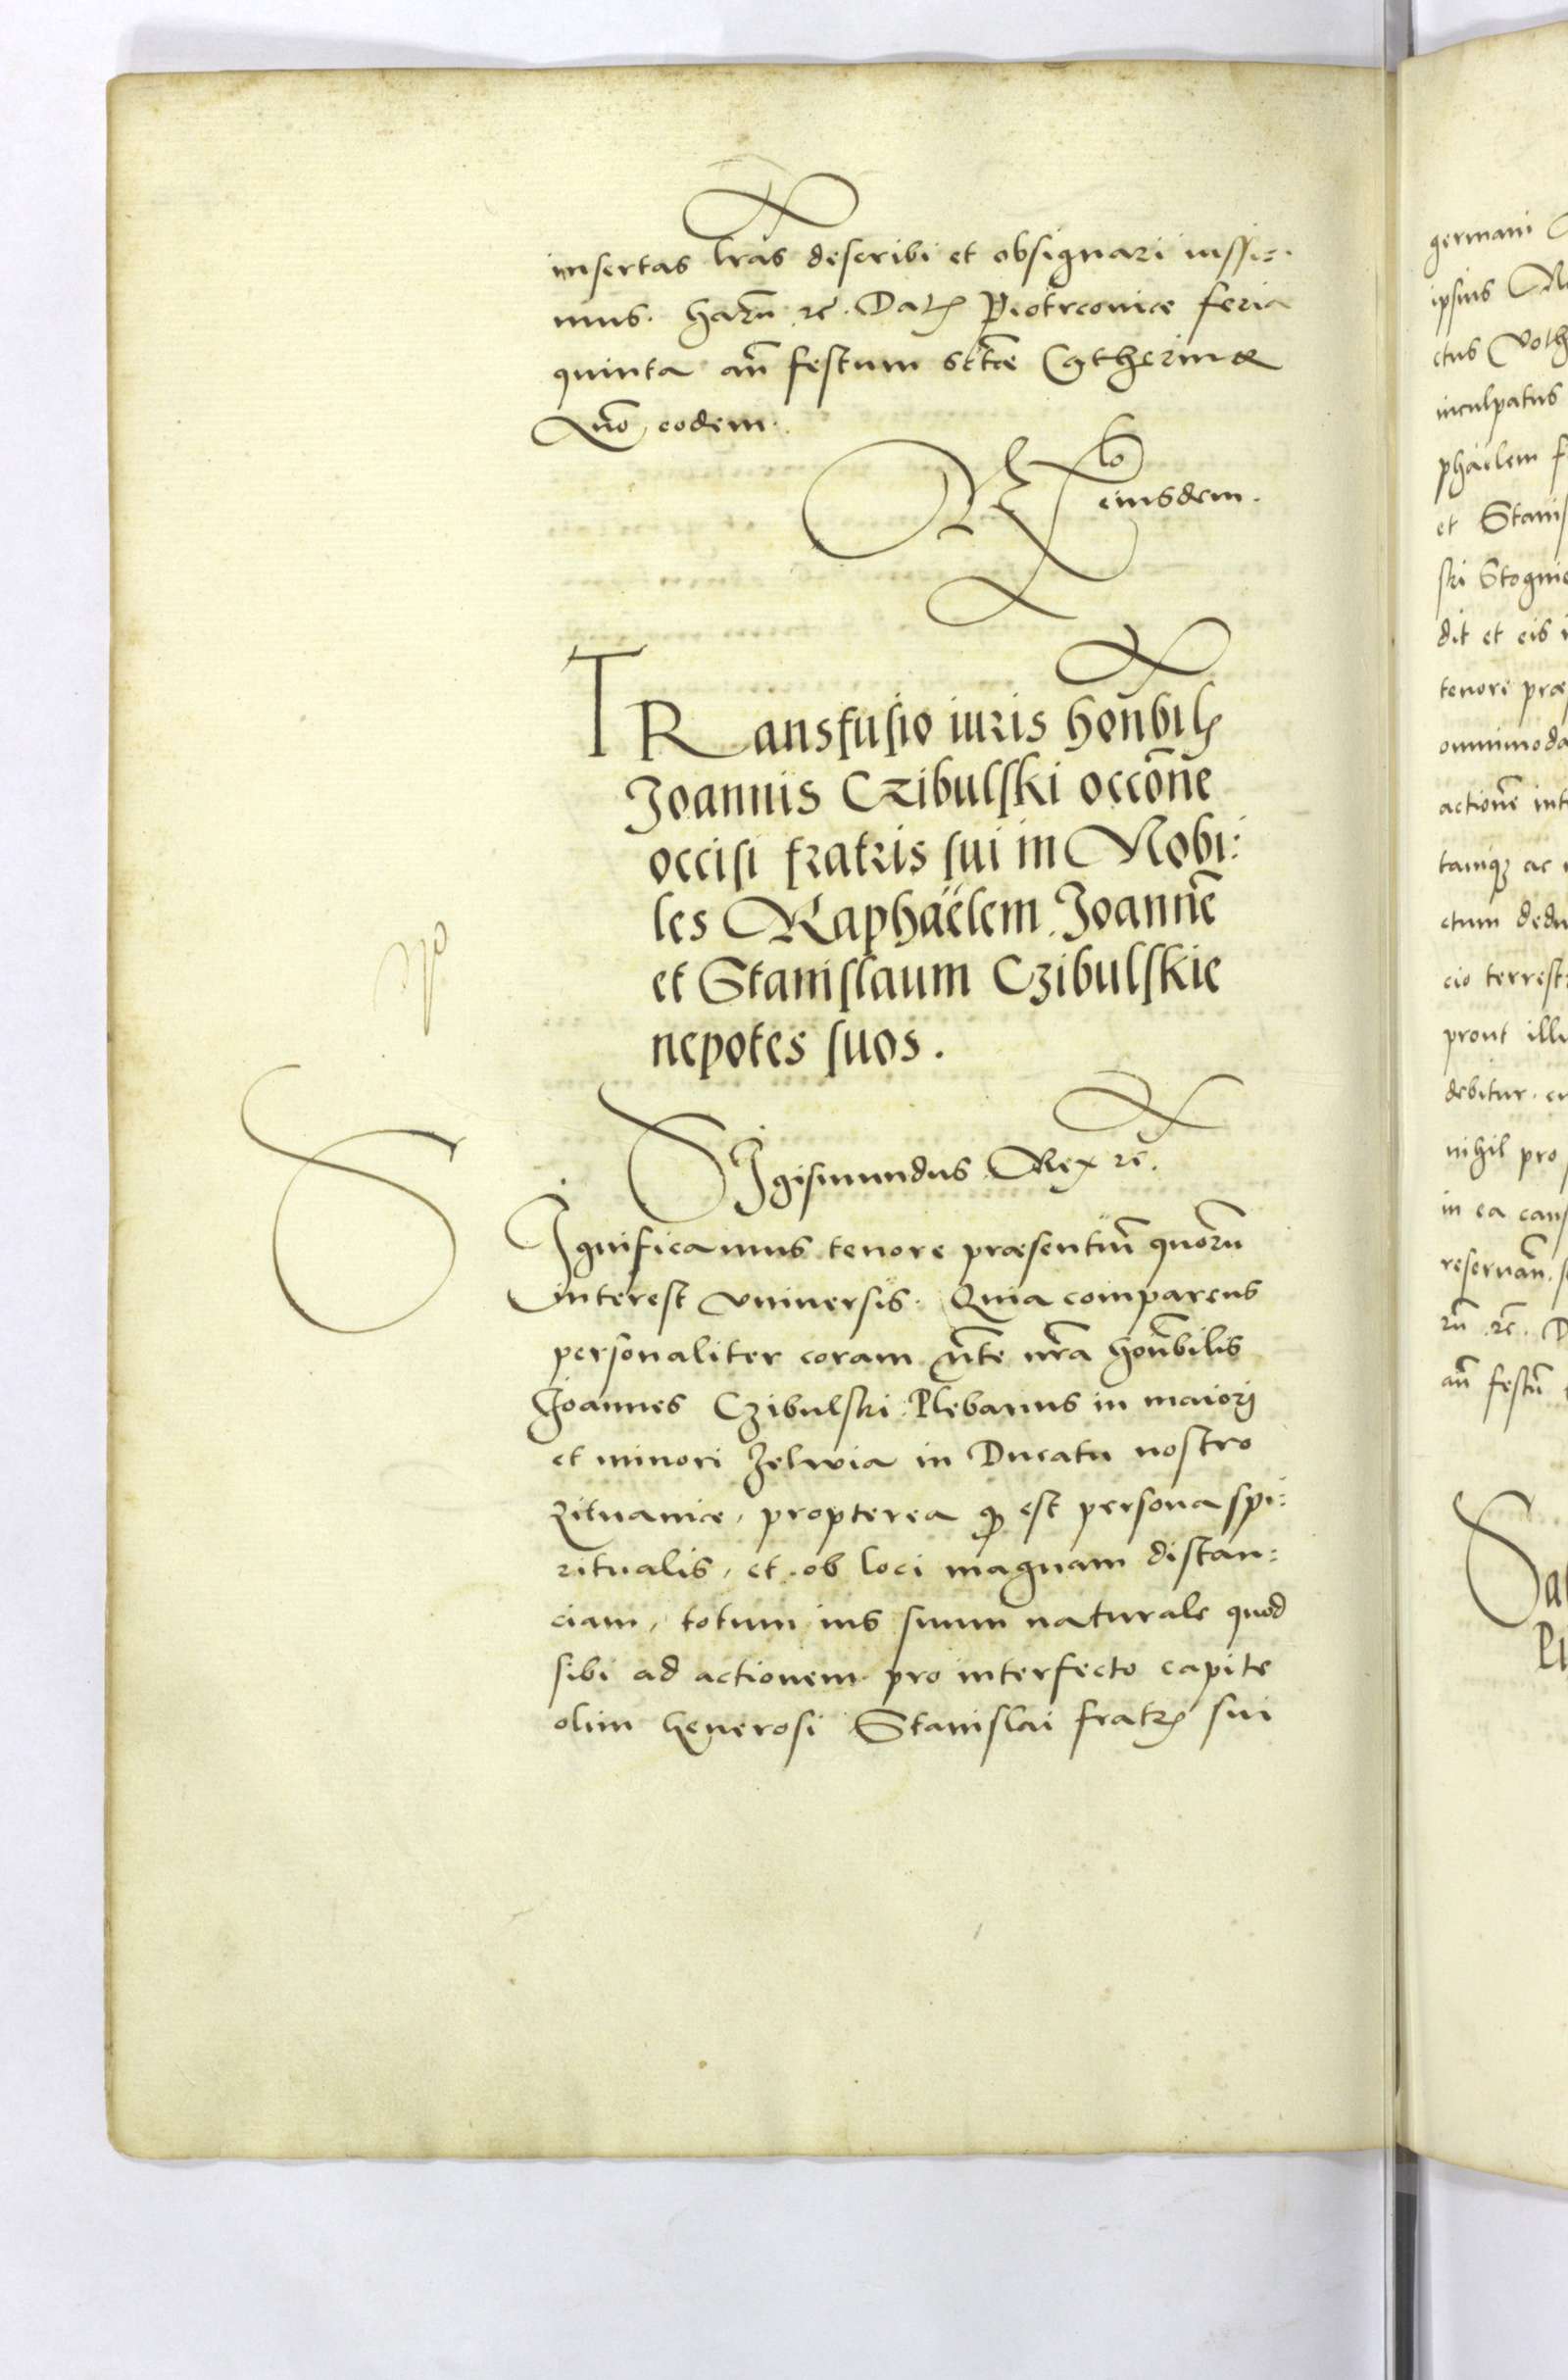 insertas lras describi et obsignari iussi=
mus. harũ rc̃. Datꝭ Piotrcoviæ feria
quinta an̄ festum sctæ Catherinæ
Ãno eodem.
Rlo
eiusdem.
TRansfusio iuris honbilꝭ
Joannis Czibulski occõne
occisi fratris sui in Nobi:
les Raphaëlem. Joannẽ
et Stanislaum Czibulskie
nepotes suos.
SIgismundus Rex rc̃.
SIgnificamus tenore præsentiũ quorũ
interest vniversis. Quia comparens
personaliter coram nra honbilis
Joannes Czibulski Plebanus in maiori
et minori Zelwia in Ducatu nostro
Lituaniæ, propterea ꝙ est persona spi:
ritualis, et ob loci magnam distan:
ciam, totum ius suum naturale quod
sibi ad actionem pro interfecto capite
olim Generosi Stanislai fratrꝭ sui
germani
ipsius
ctus
inculpatus
phaëlem
et Stanis
ski
dit et eis
tenore præ
omnimoda
actionẽ int
tamqȝ ac
ctum dedu
cio terrest
prout ill
debitur.
nihil pro
in ea caus
reservañ.
rũ rc̃. D
an̄ festũ